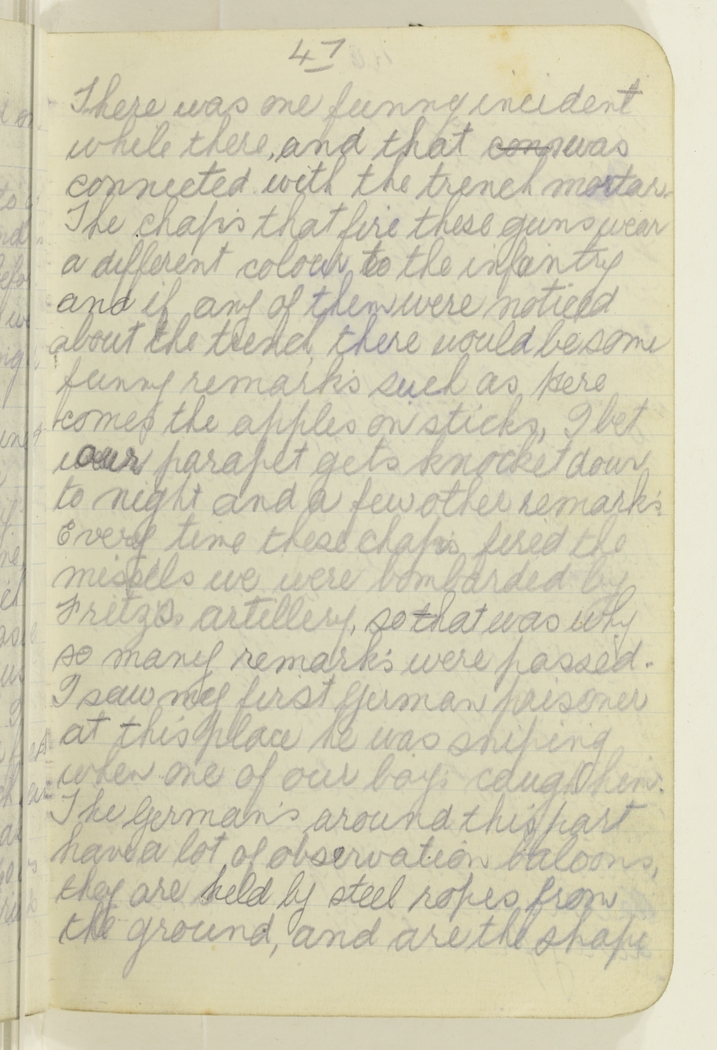 47
There was one funny incident
while there, and that con was
connected with the trench mortars.
The chaps that fire these guns wear
a different colour to the infantry
and if any of them were noticed
about the trench there would be some
funny remarks such as, here
comes the apples on sticks, I bet
our parapet gets knocket down
to night and a few other remarks
Every time these chaps fired the
missells we were bombarded by
Fritz's artillery, so that was why
so many remarks were passed.
I saw my first German prisoner
at this place he was sniping
when one of our boys caught him.
The German's around this part
have a lot of observation baloons,
they are held by steel ropes from
the ground, and are the shape